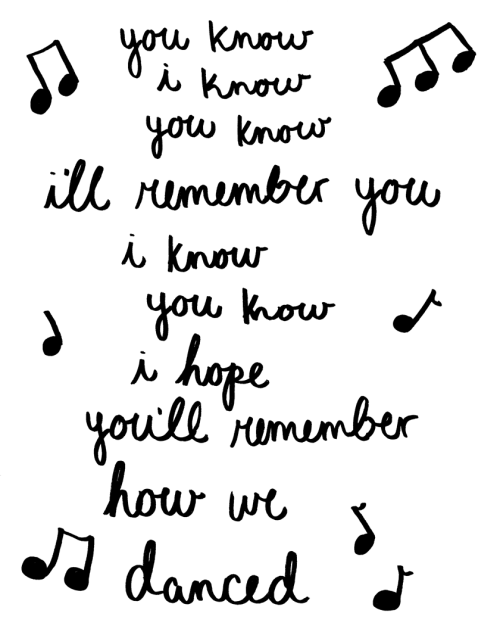 you know
i know
you know
i'll remember you
i know
you know
i hope
you'll remember
how we
danced